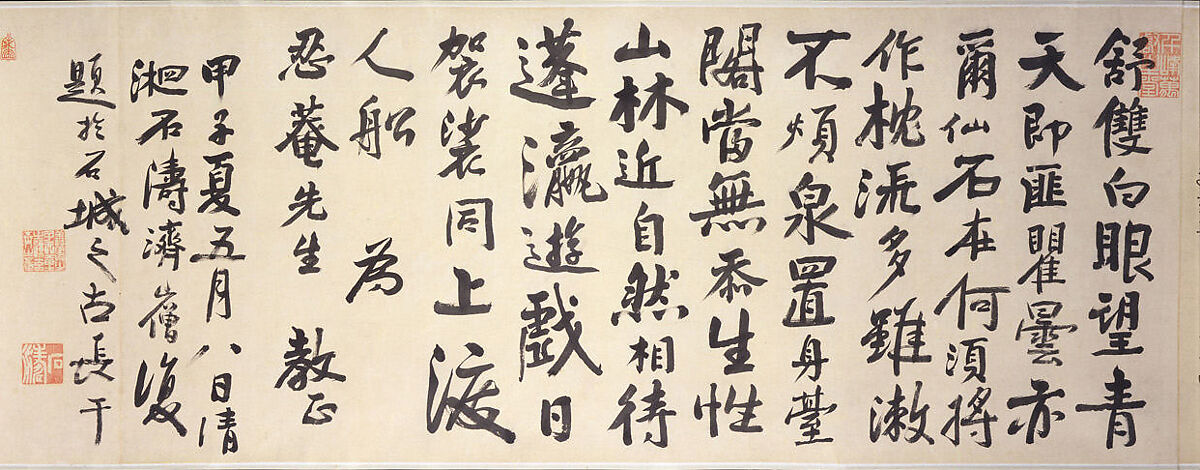 舒雙白眼望青
天即匪瞿曇亦
爾仙石在何須將
作枕流多雖漱
不煩泉置身臺
閣當無忝生性
山林近自然相待
蓬瀛遊戲日
袈裟同上渡
人船 為
忍菴先生 教正
甲子夏五月八日清
湘石濤濟山僧復
題於石城之古長干